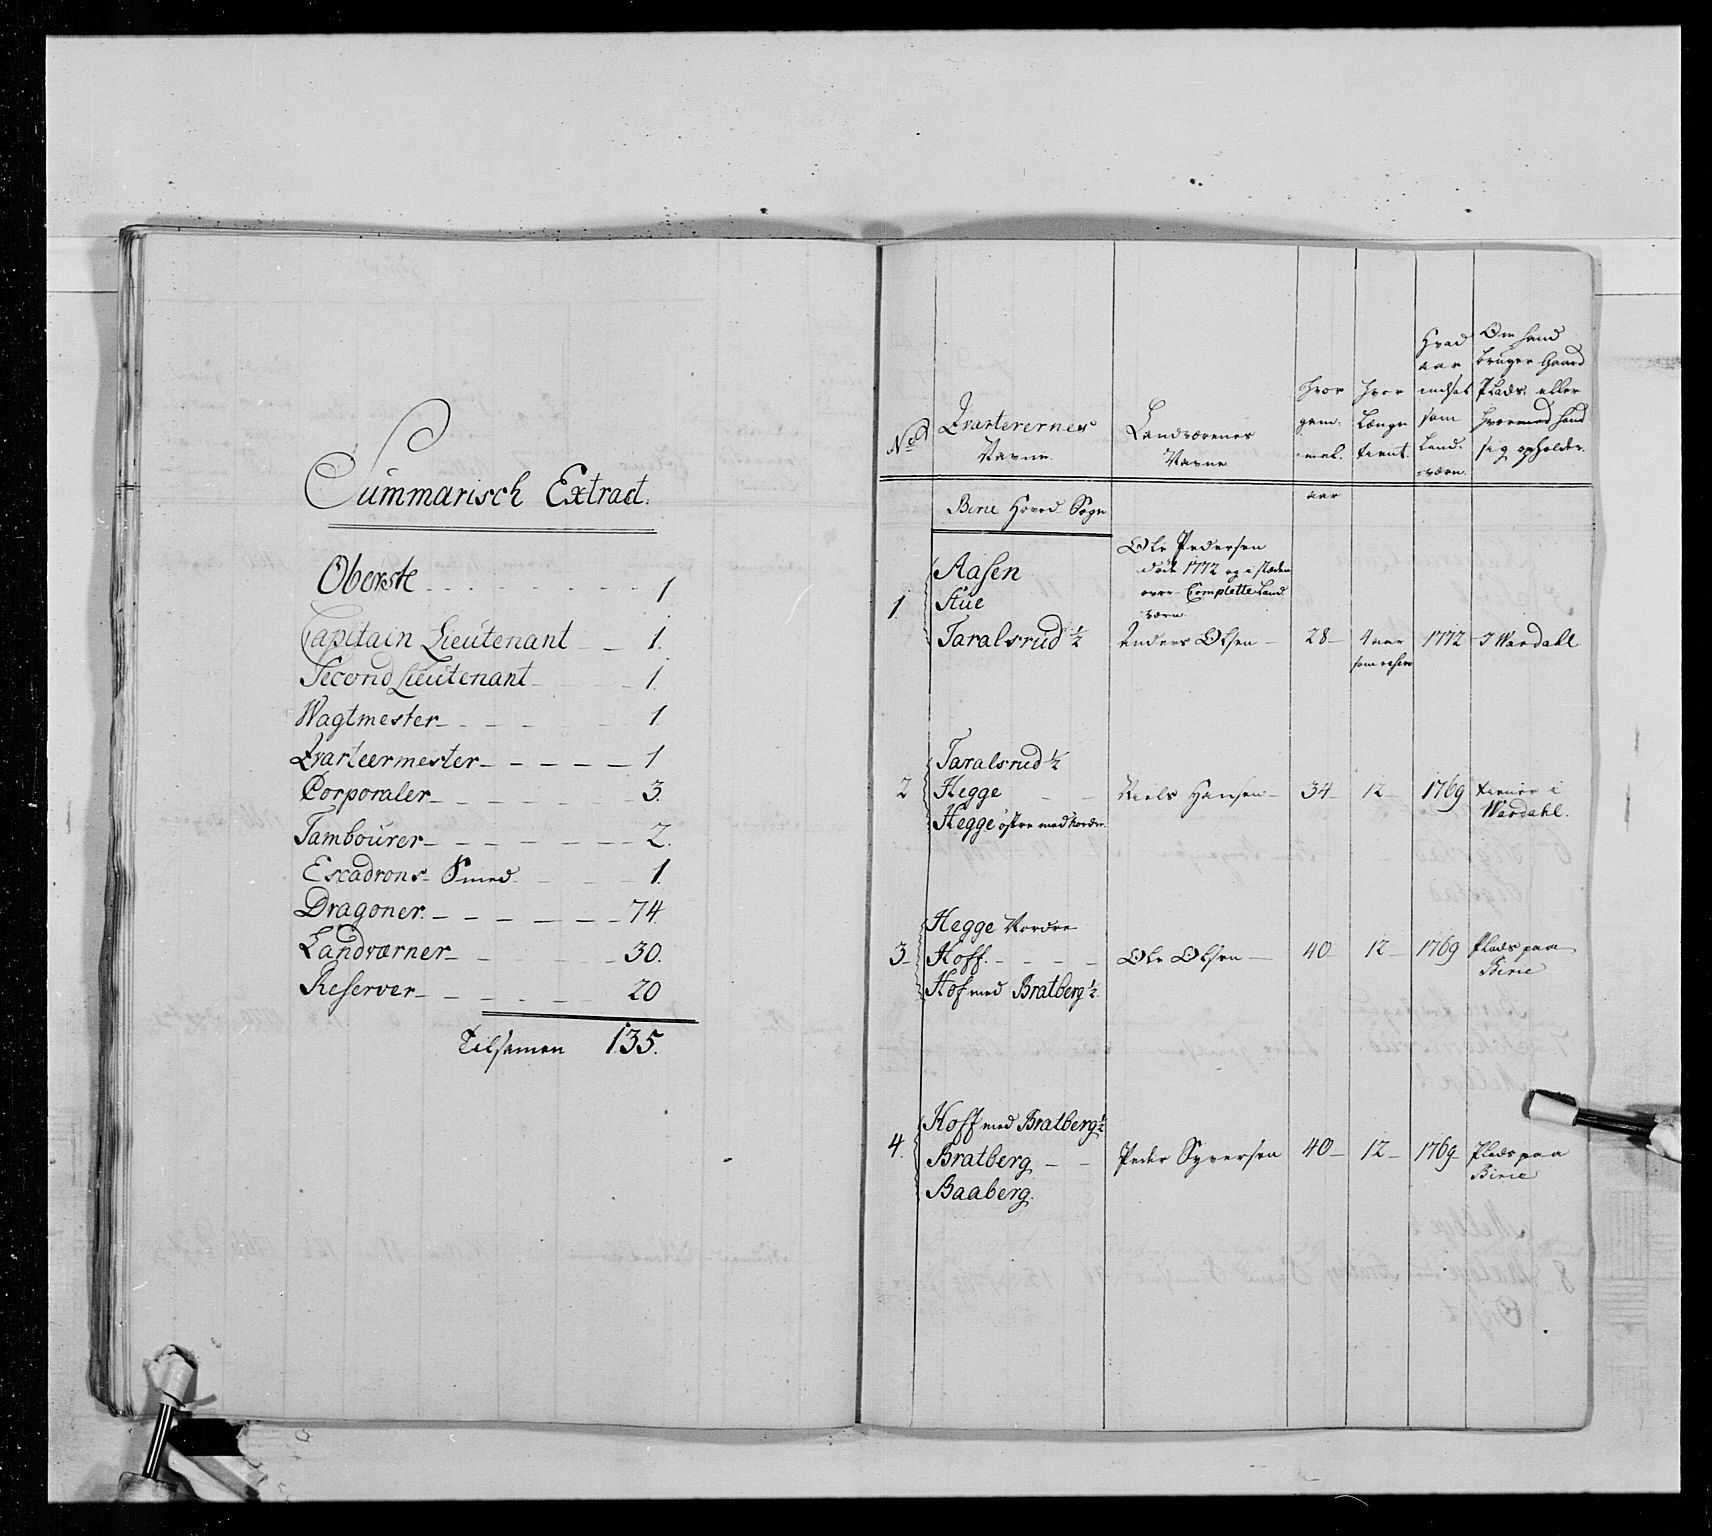 Summarisch Extract.
Oberste 1
Capitain Lieutenant 1.
Second Lieutenant 1.
Wagtmester 1.
Qvarteermester 1
Corporaler 3.
Tambourer 2.
Escadrons Smed 1.
Dragoner 74.
Landværner 30.
Reserver 20
Tilsamen 135.
No
Qvarterernes
Navne
Landværnes
Navne
hvor
gam-
mel.
hvor
Længe
tient.
Hvad
aar
indsat
som
Land-
værn.
Om hand
bruger Gaard
Plads. eller
hvormed hand
sig opholder.
Birie Hoved Sogn
aar
1.
Aasen
Stue
Taralsrud ½
Ole Pedersen
døde 1772 og i stæden
over Complette Land
værn.
Anders Olsen 28 4 aar
som reserv
1772 I Wardahl
2
Taralsrud ½
Hegge
Hegge østre med nordre
Niels Hansen 34 12 1769 tiener i
Wardahl.
3
Hegge Nordre
Hoff
Hof med Bratberg ½
Ole Olsen 40 12 1769 Plads paa
Birie
4.
Hoff med Bratberg ½
Bratberg
Baaberg.
Peder Syversen 40 12 1769 Plads paa
Birie